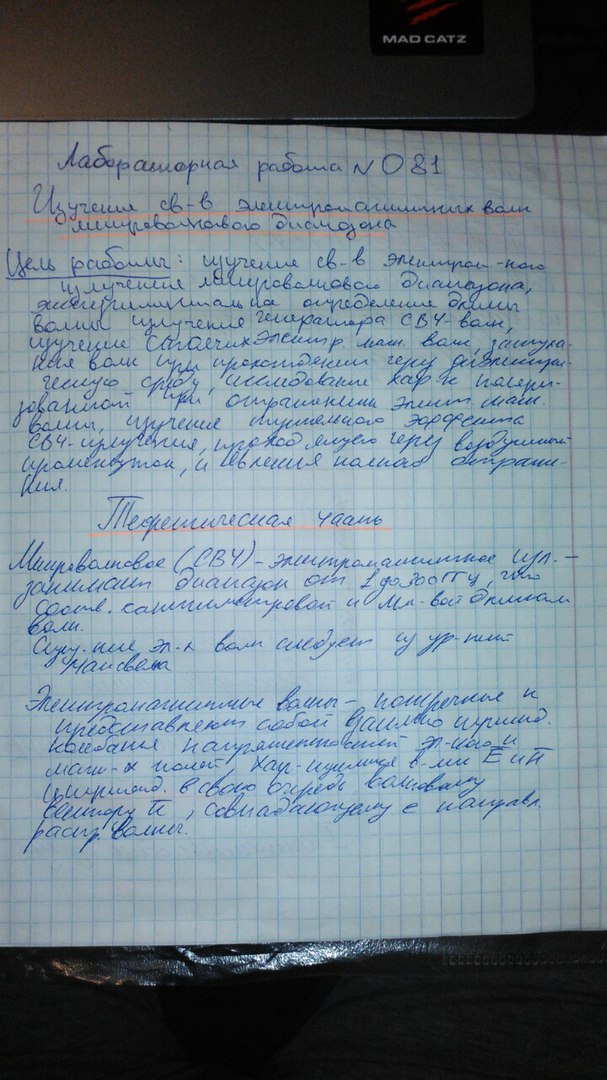 MAD CATZ
Лабораторная работа N 081
Изучение св-в электромагнитных волн
микроволнового диапазона
Цель работы: изучение св-в электром-ного
излучения микроволнового диапазона,
экспериментальное определение длины
волны излучения генератора СВЧ волн,
изучение стоячих электр. маг. волн, затуха-
ния волн при прохождении через диэлектри-
ческую среду, исследование хар-к поляри-
зованной при отражении элект. маг.
волны, изучение туннельного эффекта
СВЧ-излучения, проходящего через воздушный
промежуток, и явления полного отраже-
ния.
Теоретическая часть
Микроволновое (СВЧ) - электромагнитное изл. -
занимает диапазон от 1 до 300 ГГц, что
соотв. сантиметровой и мл-вой длинам
волн.
Сущ-ние эл-х волн следует из ур-ний
Максвела
Электромагнитные волны - поперечные и
представляют собой взаимно перпенд.
колебания напряженностей эл-кого и
магн-х полей, хар-изуемые в-ми E и H
перпенд. в свою очередь волновому
вектору n, совпадающему с направл.
распр. волны.